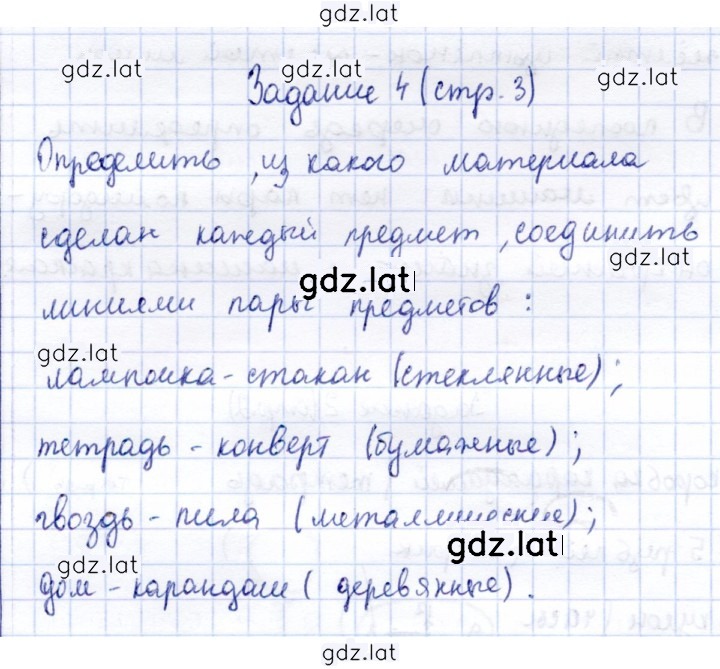 gdz.lat
gdz.lat
gdz.lat
gdz.lat
Задание 4 (стр. 3)
Определить, из какого материала
сделан каждый предмет, соединить
gdz.lat
gdz.lat
линиями пары предметов:
gdz.lat
лампочка - стакан (стеклянные);
тетрадь - конверт (бумажные);
гвоздь - пила (металлические);
gdz.lat
gdz.lat
дом - карандаш (деревянные).
gdz.lat